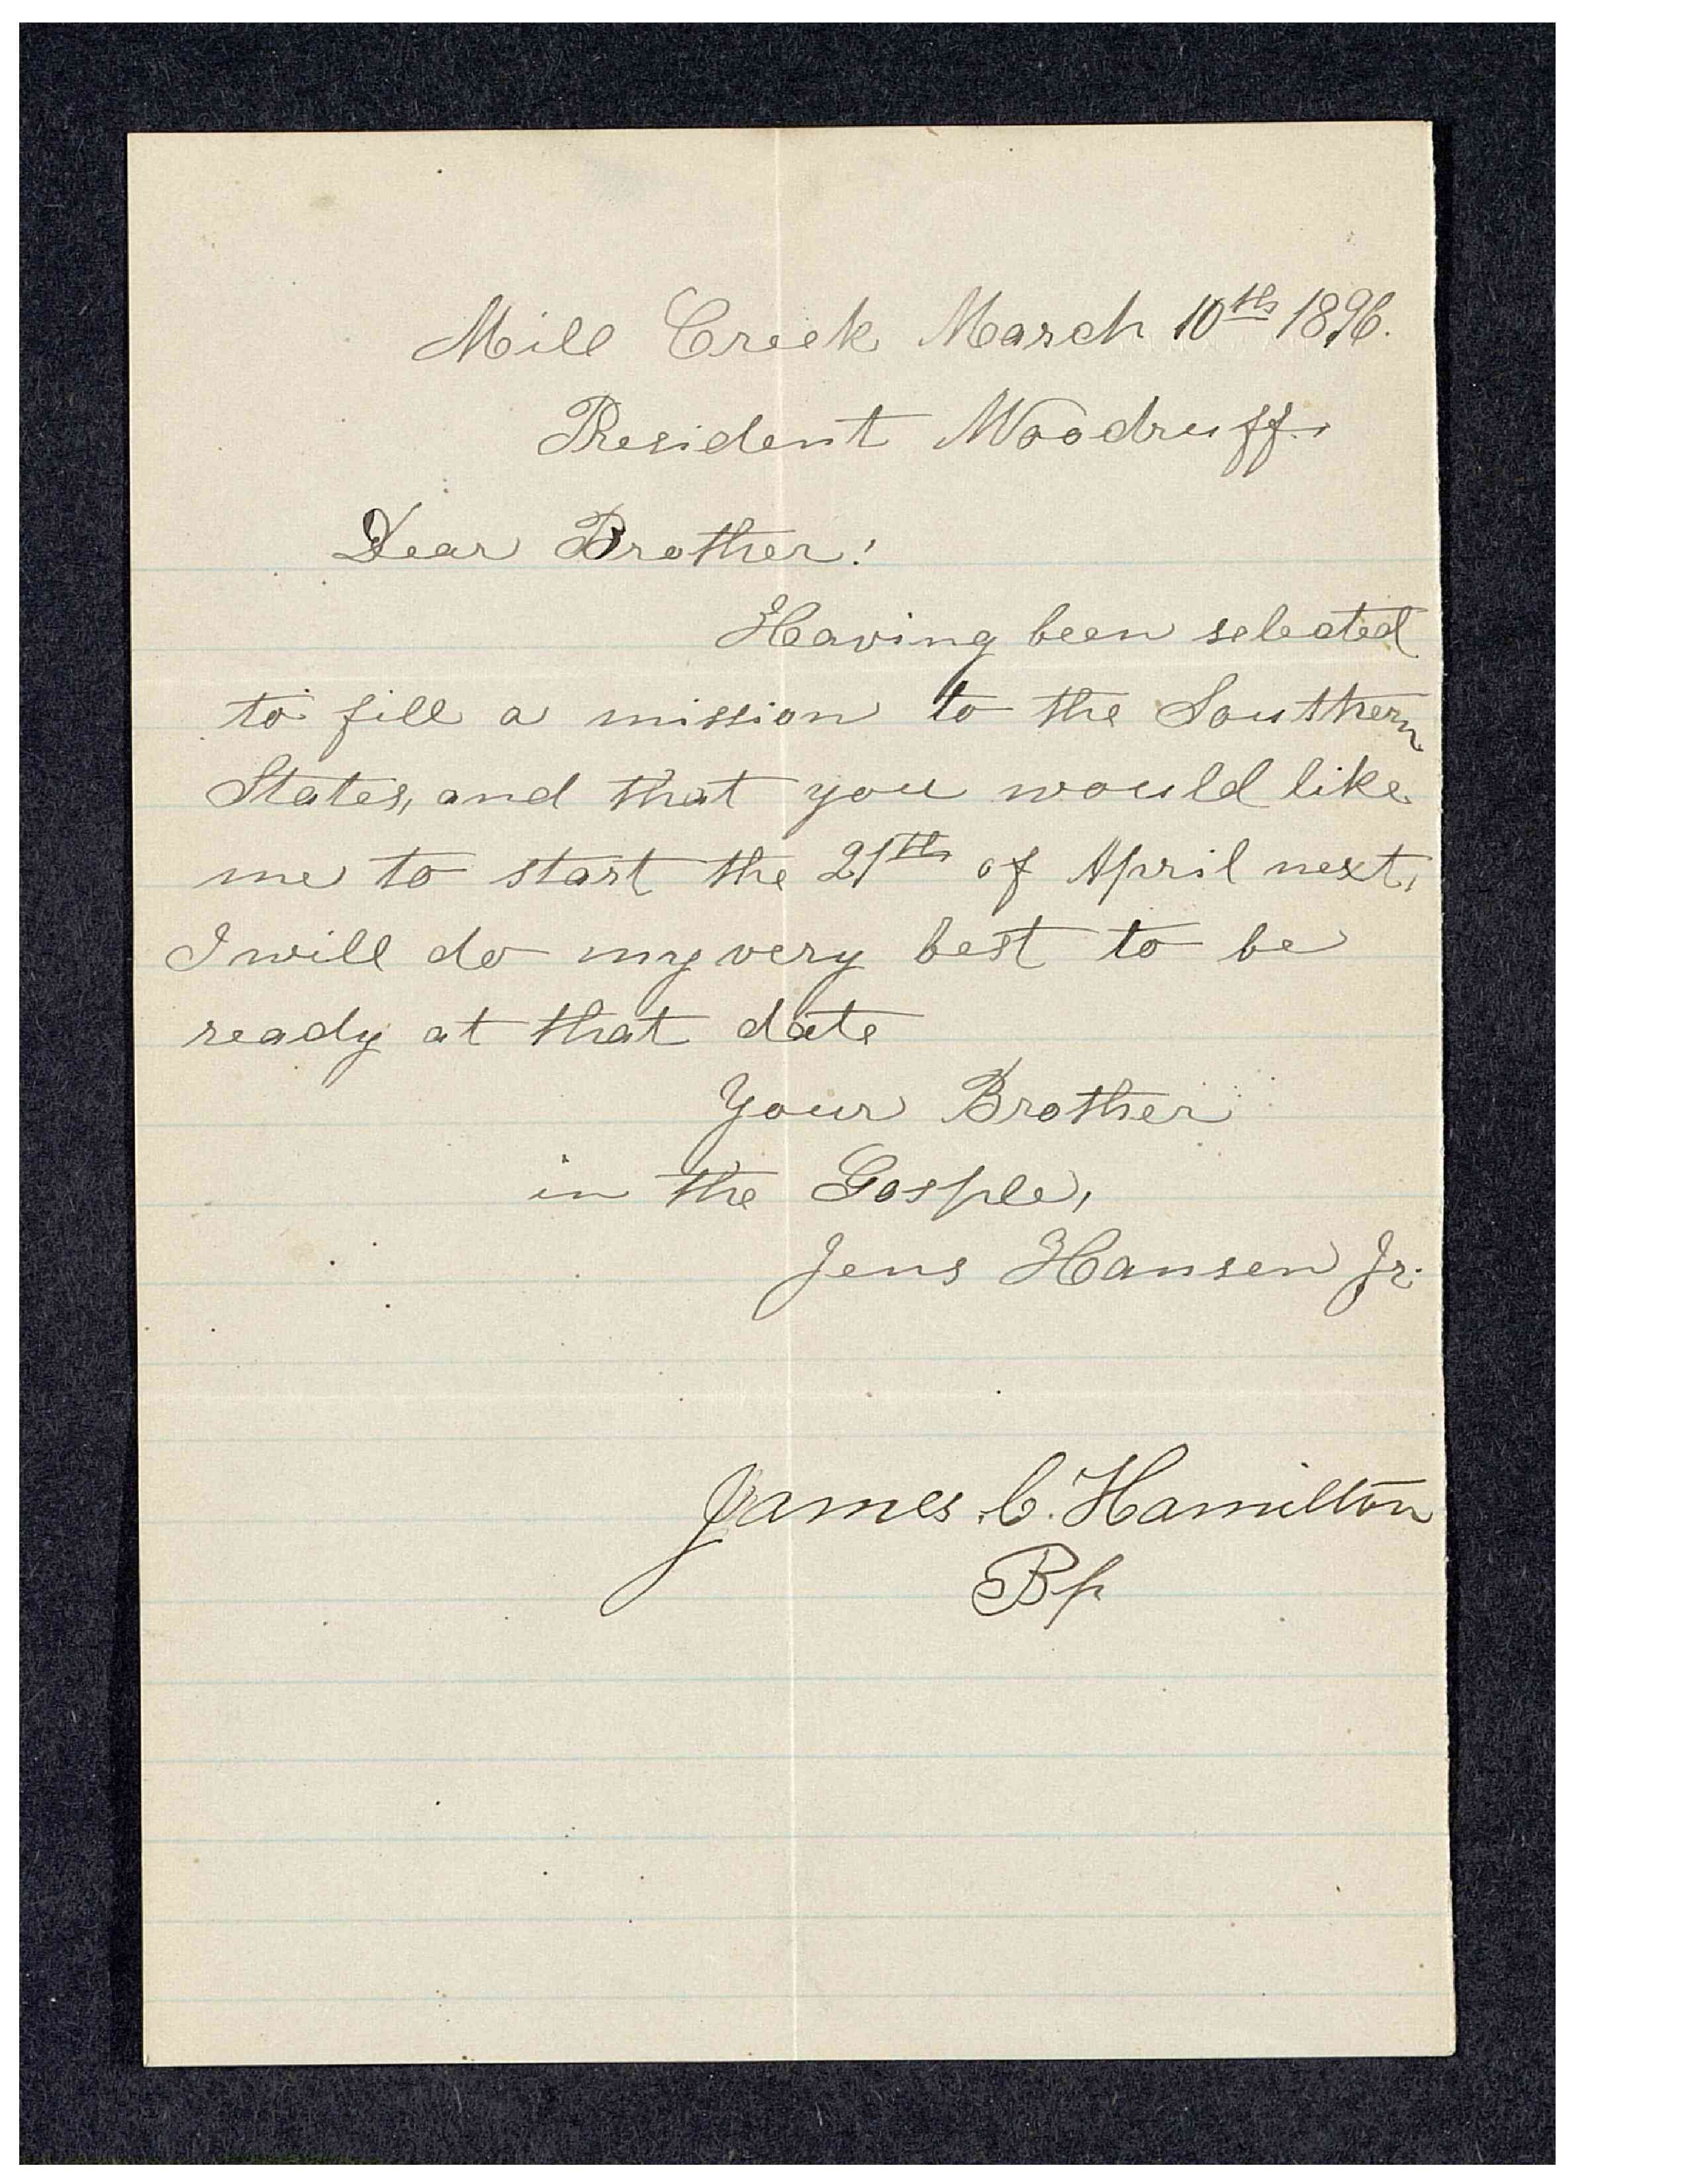 Mill Creek March 10th 1896.
President Woodruff.
Dear Brother!
Having been selected
to fill a mission to the Southern
States, and that you would like
me to start the 21th of April next,
I will do my very best to be
ready at that date
Your Brother
in the Gosple,
Jens Hansen Jr.
James C. Hamilton
Bp